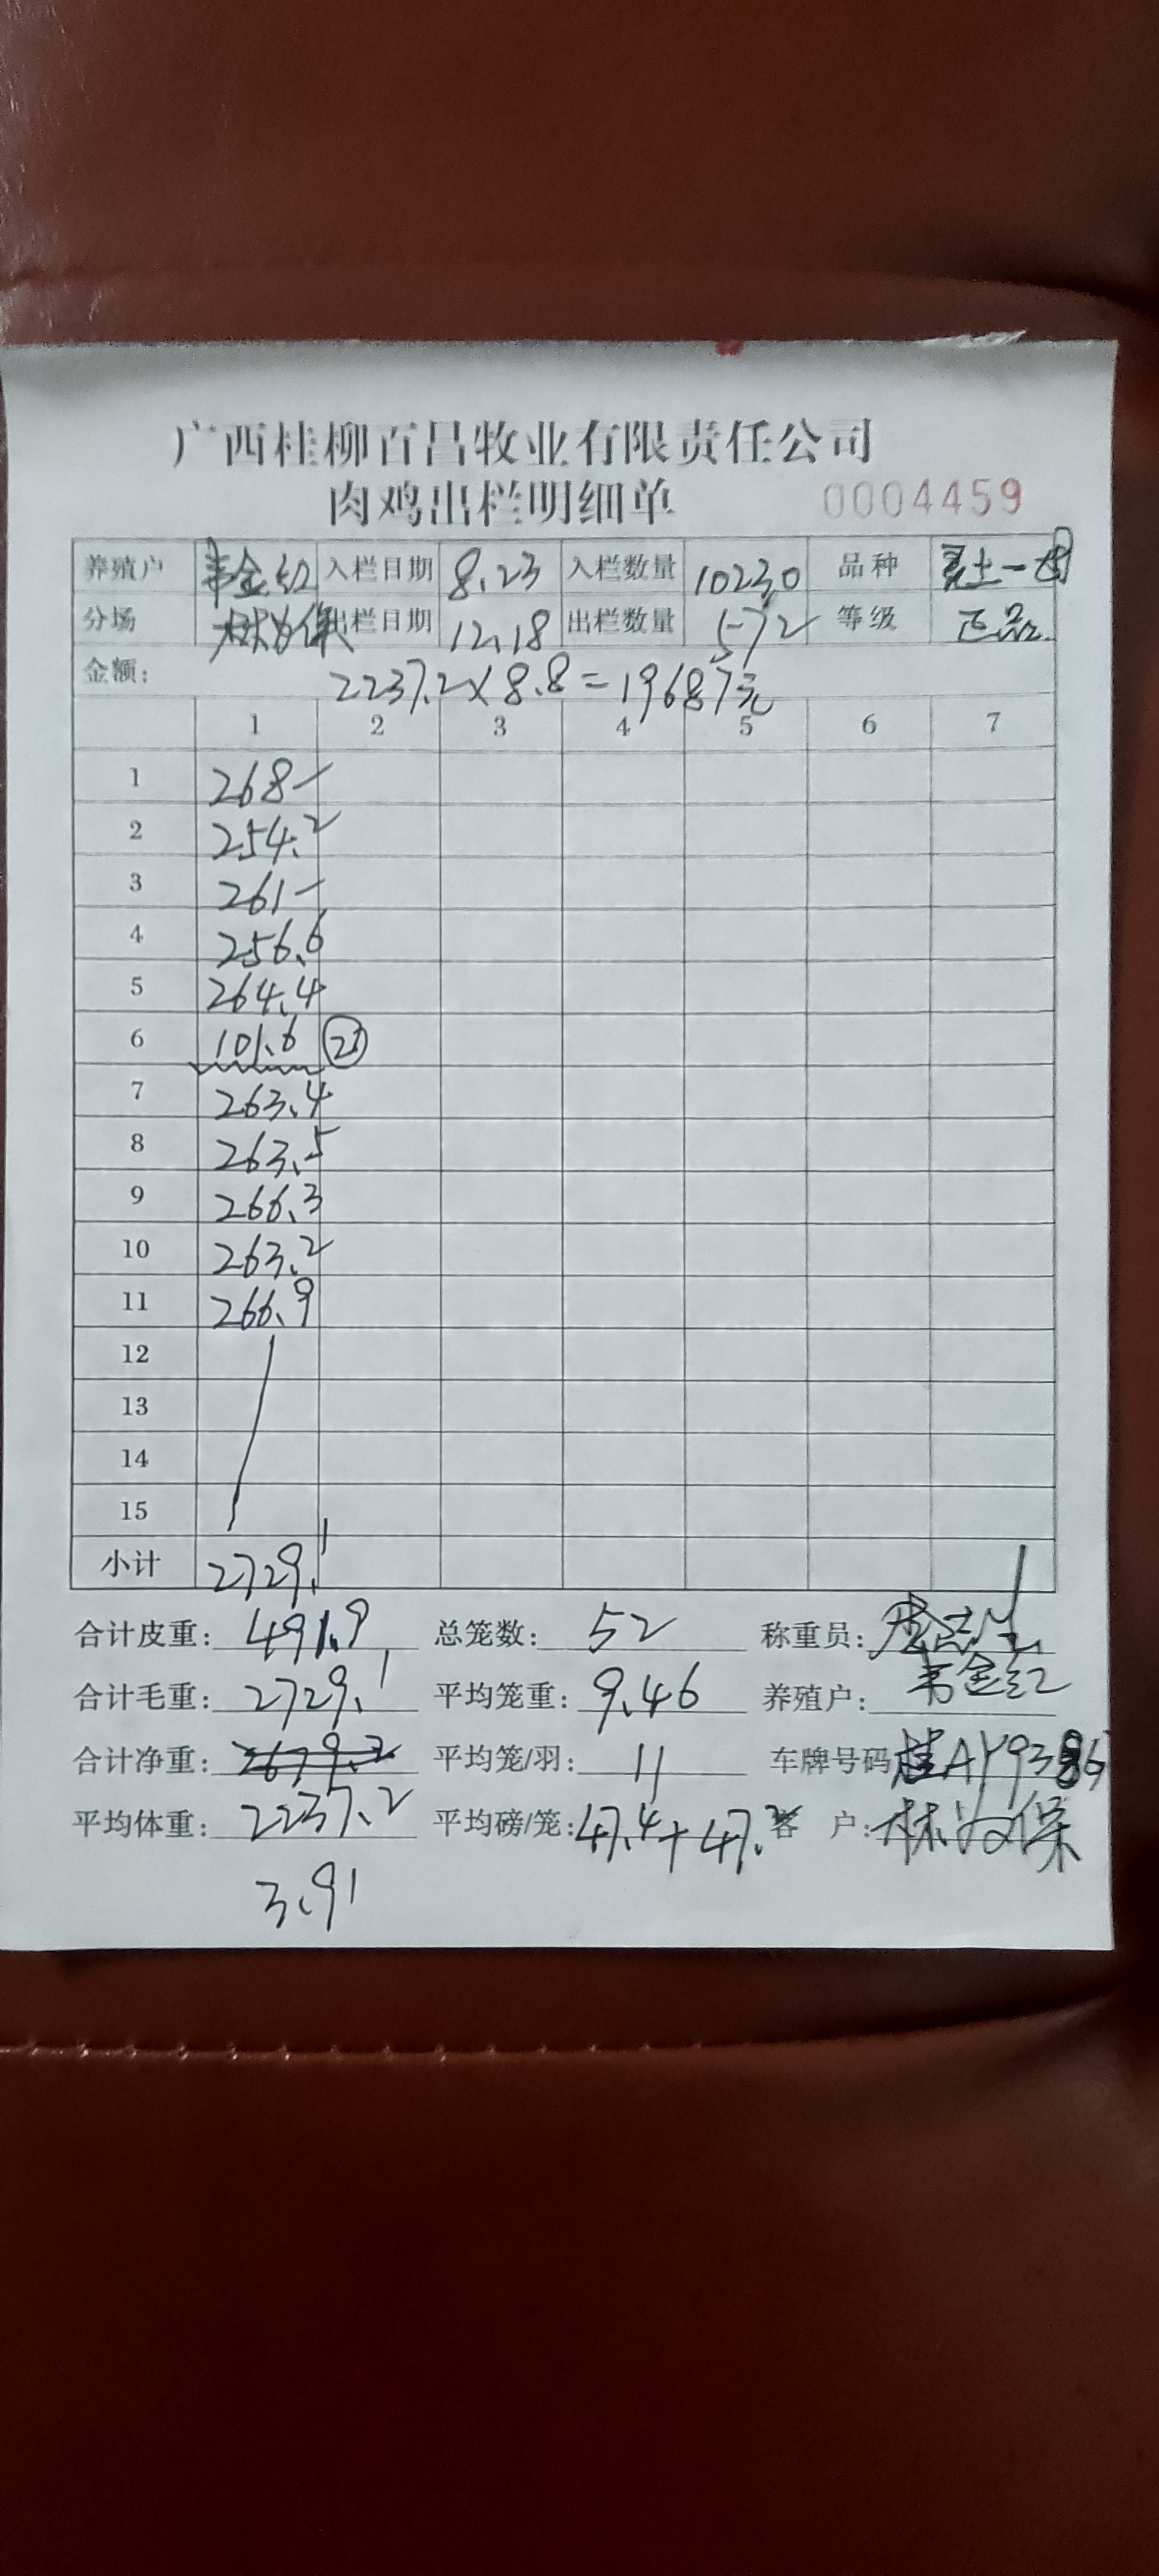 广西桂柳百昌牧业有限责任公司
肉鸡出栏明细单 0004459
养殖户 韦金红 入栏日期 8.23 入栏数量 10230 品种 土一
分场 林汝保 出栏日期 12.18 出栏数量 572 等级 正品
金额: 2237.2×8.8=19687元
1 2 3 4 5 6 7
1 268-
2 254.2
3 261-
4 256.6
5 264.4
6 101.6
7 263.4
8 263.5
9 266.3
10 263.2
11 266.9
12
13
14
15
小计 2729.1
合计皮重: 491.9 总笼数: 52 称重员:
合计毛重: 2729.1 平均笼重: 9.46 养殖户: 韦金红
合计净重: 2679.2 平均笼/羽: 11 车牌号码 桂AY9386
平均体重: 2237.2 平均磅/笼: 47.4+47.2 客 户: 林汝保
3.91